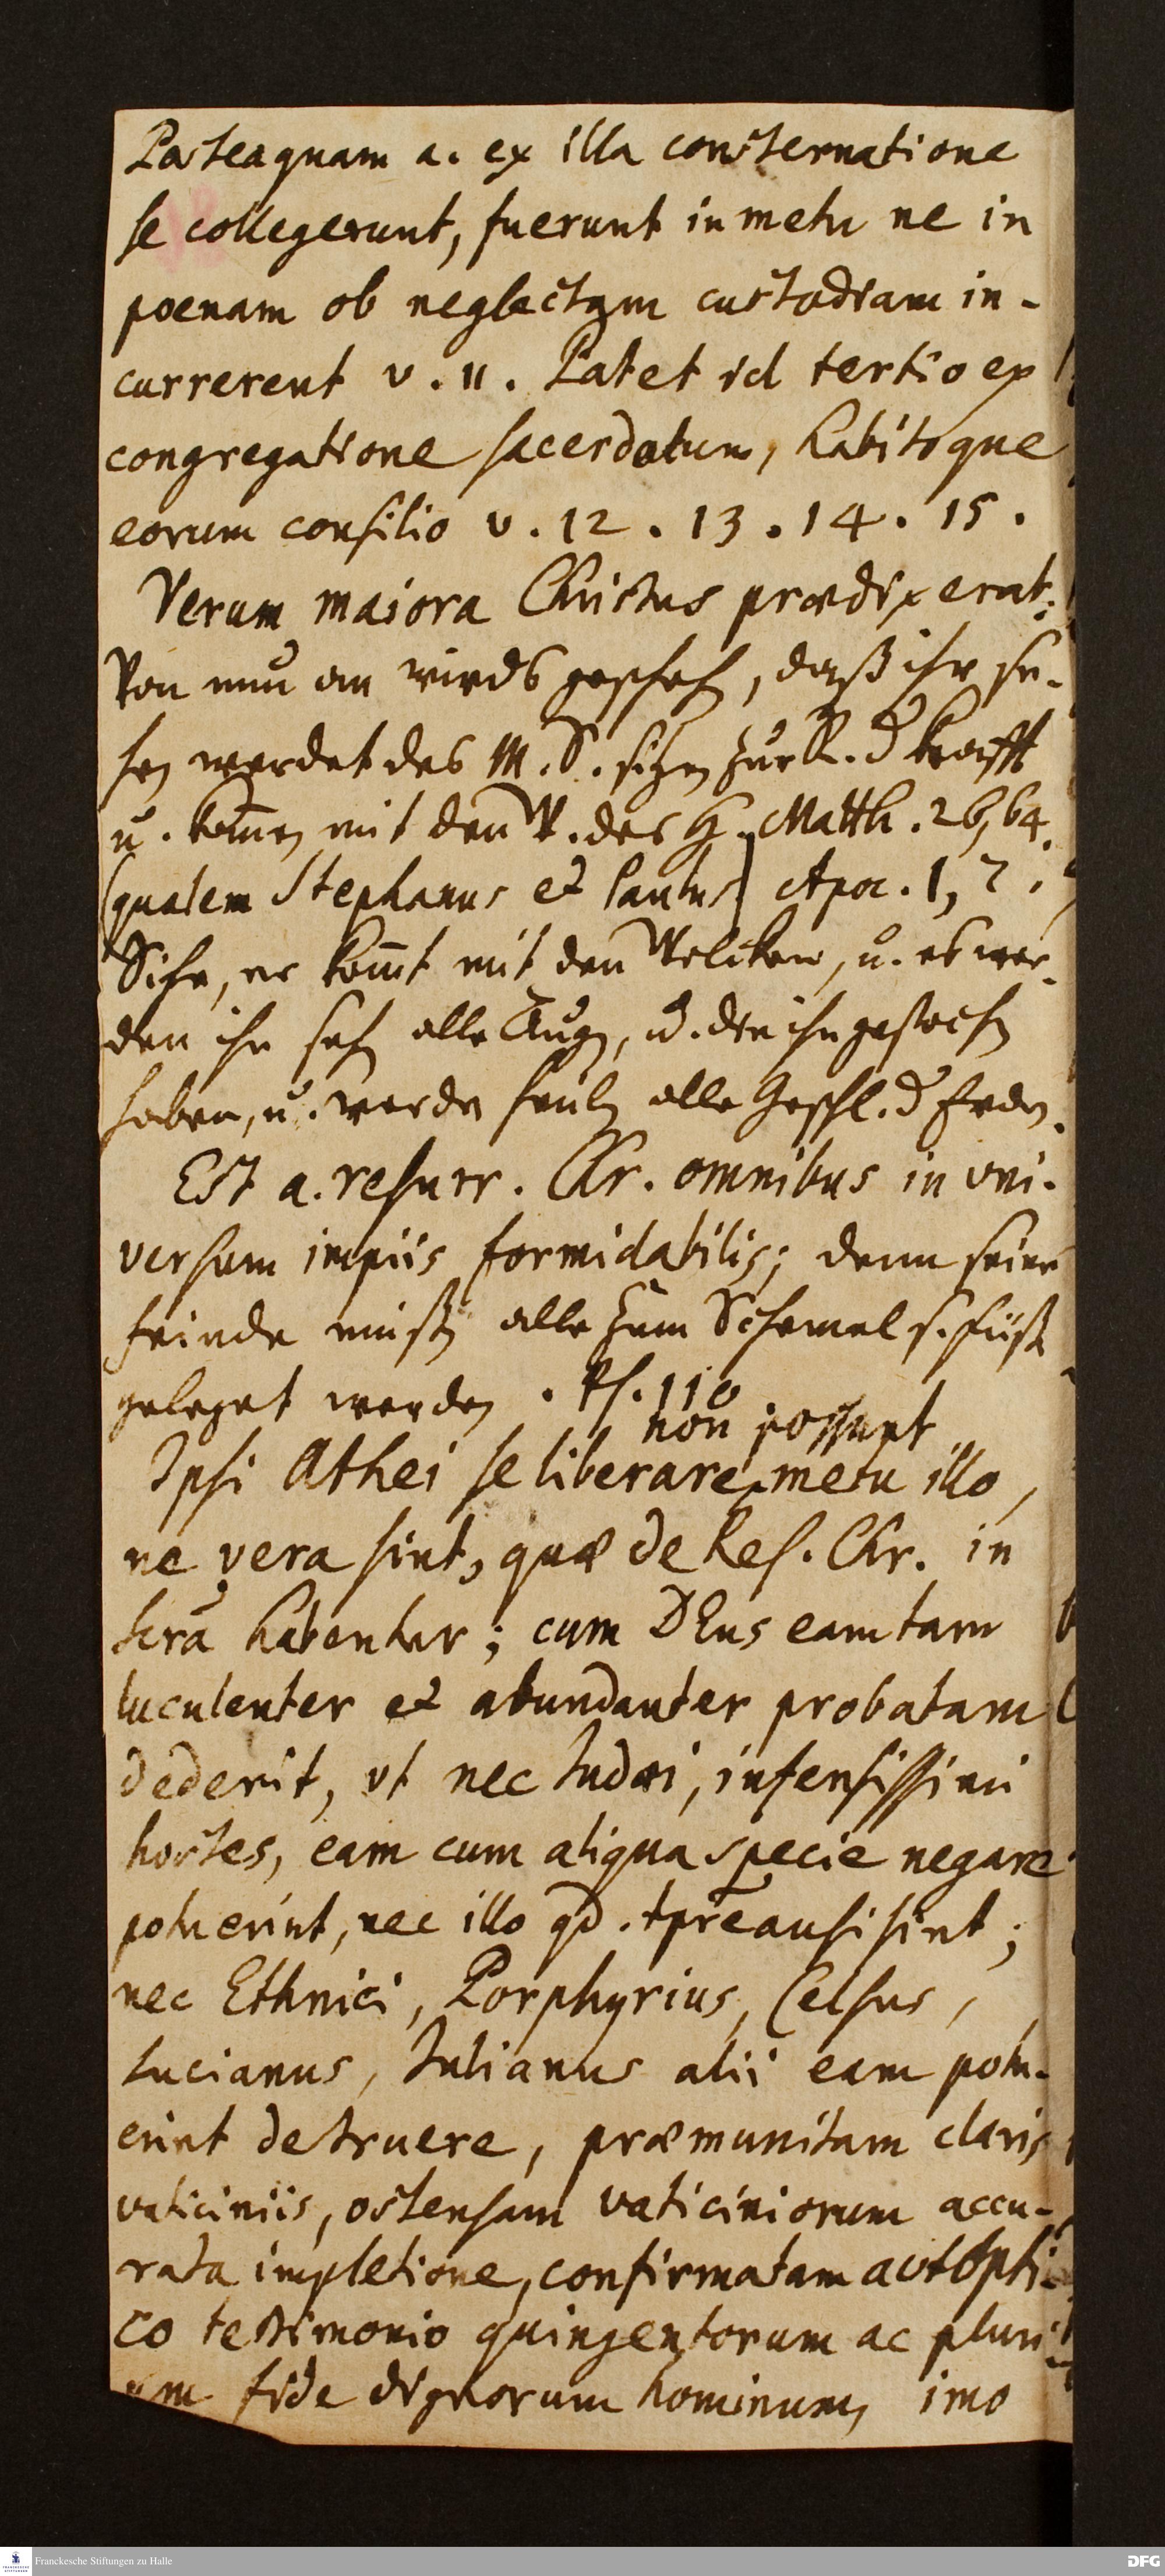 Posteaquam a. ex illa consternatione
se collegerunt, fuerunt in metu ne in
poenam ob neglectam custodiam in-
currerent v. 11. Patet id tertio ex
congregatione sacerdotum, habitoque
eorum consilio v. 12. 13. 14. 15.
Verum maiora Christus prædixerat:
Von nun an wirds geschehn, daß ihr se-
hen werdet des M. S. sitzen zur R. d Krafft
u. kom̄en mit den W. des H. Matth. 26, 64.
(qualem Stephanus et Paulus) Apoc. 1, 7.
Sihe, er kom̄t mit den Wolcken, u. es wer-
den ihn sehn alle Augen, u. die ihn gestochen
haben, u. werden heulen alle Geschl. d Erden.
Est a. resurr. Chr. omnibus in uni-
versum impiis formidabilis; denn seine
Feinde müßen alle zum Schemel s. Füße
geleget werden. Ps. 110
non possunt
Ipsi Athei se liberare metu illo,
ne vera sint, quæ de Res. Chr. in
scra habentur; cum DEus eam tam
luculenter et abundanter probatam
dederit, ut nec Judæi, infensissimi
hostes, eam cum aliqua specie negare
potuerint, nec illo qd. tpre ausi sint;
nec Ethnici, Porphyrius, Celsus,
Lucianus, Julianus alii eam potu-
erint destruere, præmunitam claris
vaticiniis, ostensam vaticiniorum accu-
rata impletione, confirmatam autopti-
co testimonio quingentorum ac pluri-
um fide dignorum hominum, imo
Franckesche Stiftungen zu Halle
DFG